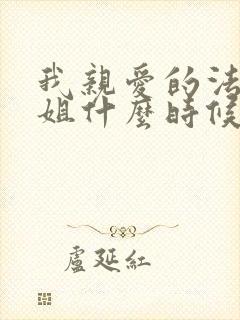 我親愛的法
姐什麼時候
盧延紅